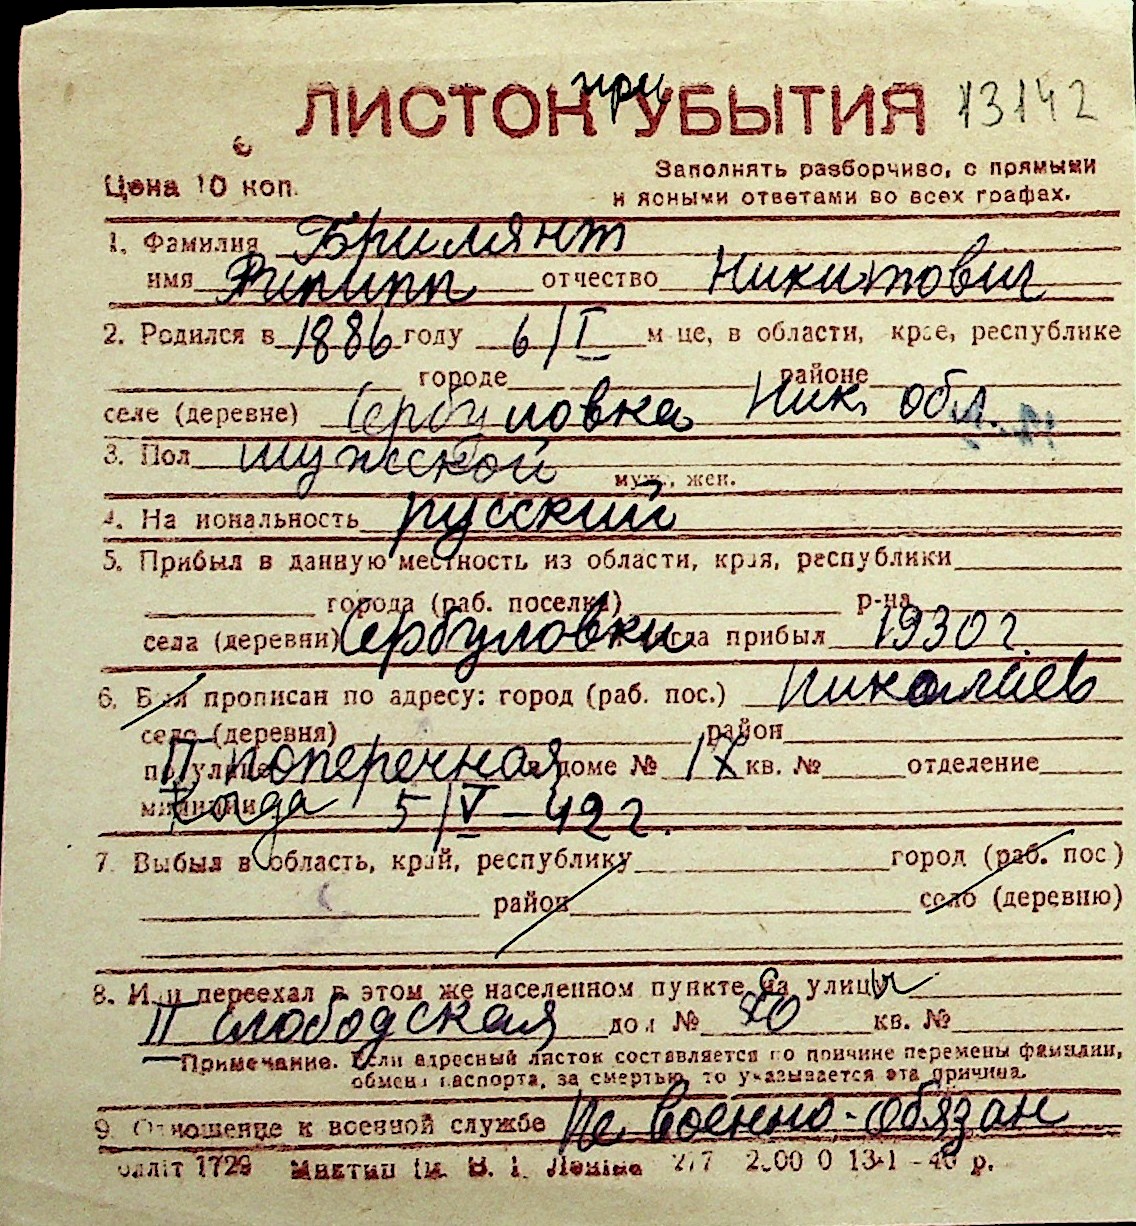 при
ЛИСТОК УБЫТИЯ 13142
Цена 10 коп.
Заполнять разборчиво, с прямыми
и ясными ответами во всех графах.
1. Фамилия Брилянт
имя Филипп отчество Никитович
2. Родился в 1886 году 6/I м-це, в области, крае, республике
городе районе
селе (деревне) Сербуловка Ник. обл.
3. Пол мужской муж., жен.
4. Национальность русский
5. Прибыл в данную местность из области, края, республики
города (раб. поселка) р-на
села (деревни) Сербуловки когда прибыл 1930 г.
6. Был прописан по адресу: город (раб. пос.) Николаев
село (деревня) район
по улице II поперечная в доме № кв. № отделение
милиции когда 5/V-42 г.
7. Выбыл в область, край, республику город (раб. пос.)
район село (деревню)
8. Или переехал в этом же населенном пункте с улицы
II слободская дом № кв. №
Примечание. Если адресный листок составляется по причине перемены фамилии,
обмена паспорта, за смертью, то указывается эта причина.
9. Отношение к военной службе Не военно-обязан
1729 Миктип ім. В. І. Леніна 277 13-1-40 р.